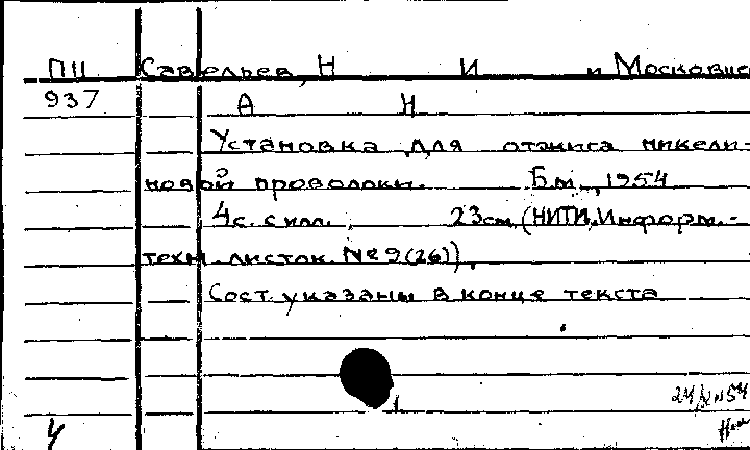 ПЦ Савельев, Н И и Московце
937 А Н
Установка для отжига никели-
новой проволоки. Б.м., 1954
4с. с илл. 23см (НИТИ, Информ.-
техн. листок №9(26)).
Сост. указаны в конце текста
4